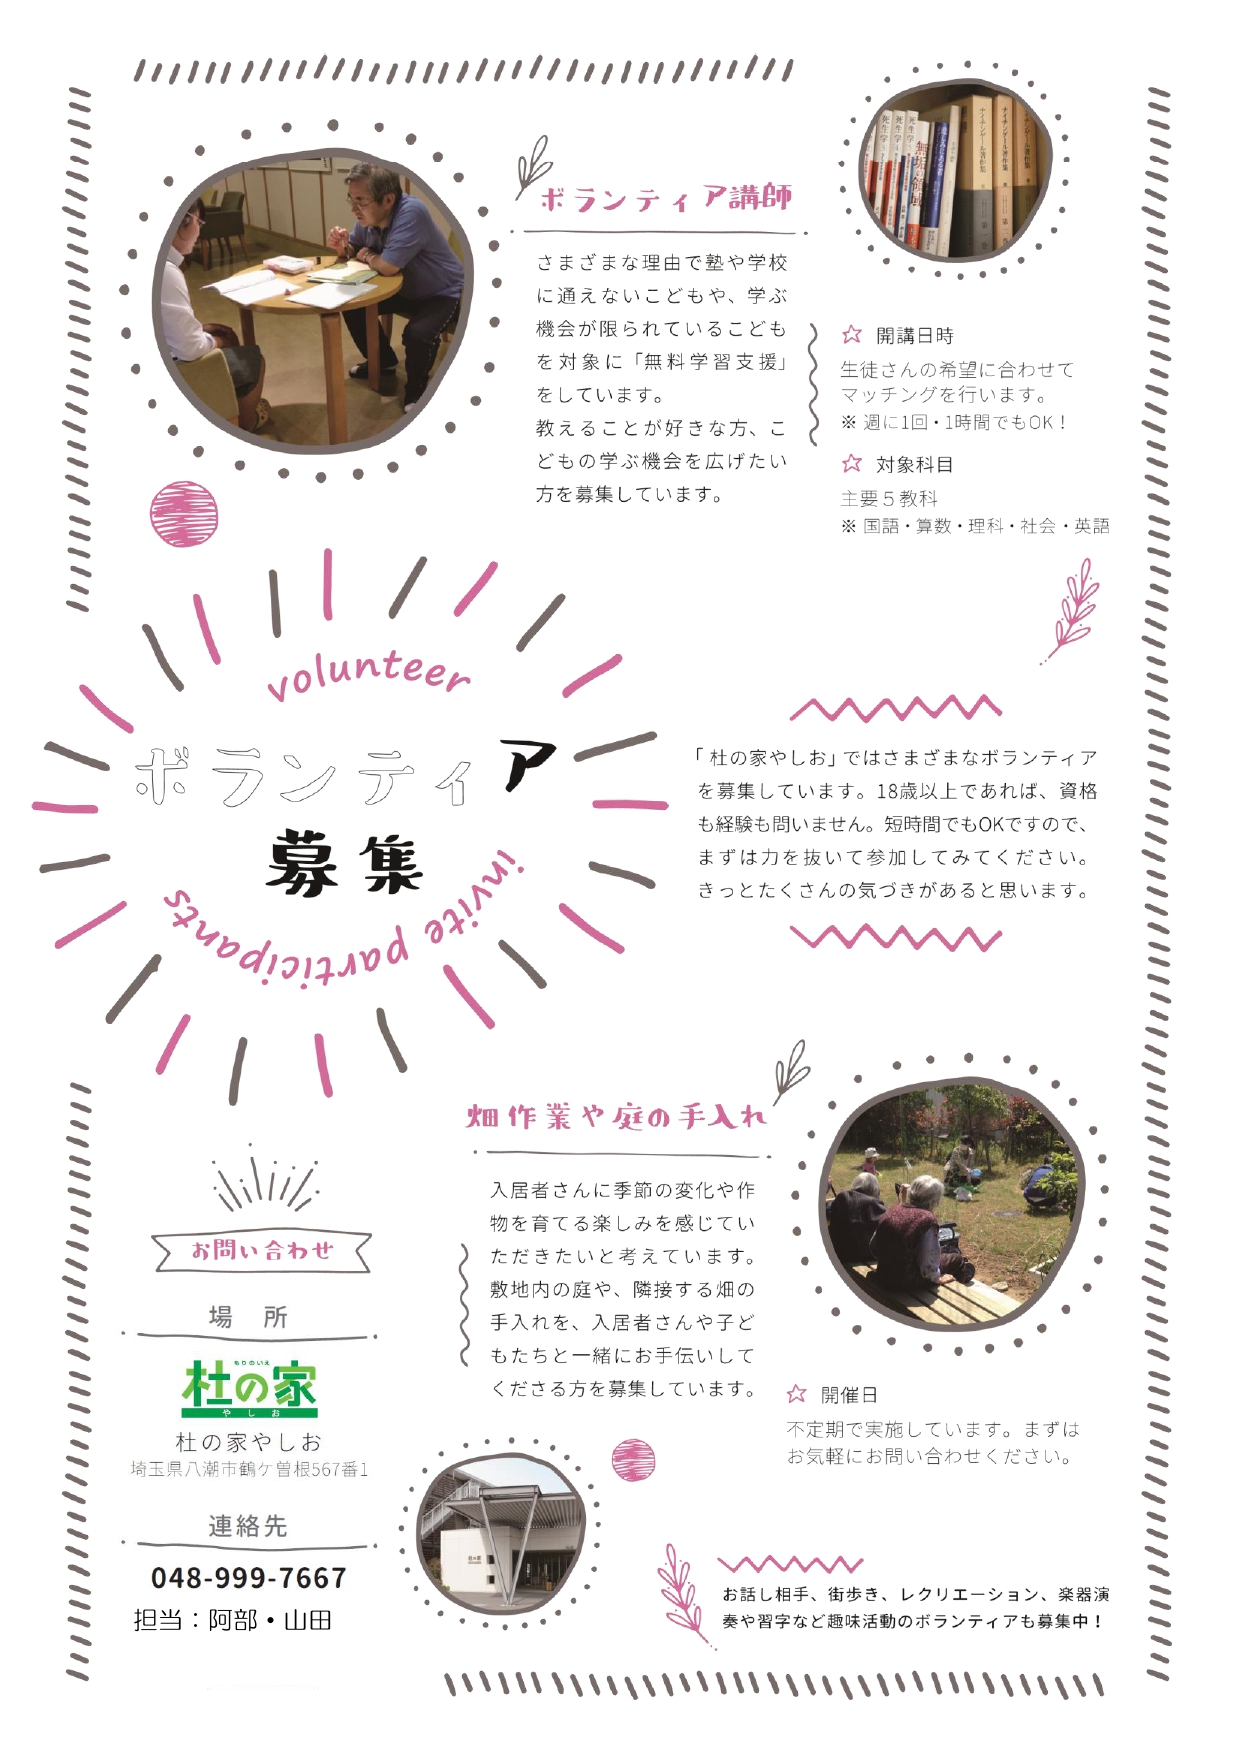 ボランティア講師
さまざまな理由で塾や学校
に通えないこどもや、学ぶ
機会が限られているこども
を対象に「無料学習支援」
をしています。
教えることが好きな方、こ
どもの学ぶ機会を広げたい
方を募集しています。
☆ 開講日時
生徒さんの希望に合わせて
マッチングを行います。
※ 週に1回・1時間でもOK！
☆ 対象科目
主要５教科
※ 国語・算数・理科・社会・英語
volunteer
ボランティア
募集
invite participants
「杜の家やしお」ではさまざまなボランティア
を募集しています。18歳以上であれば、資格
も経験も問いません。短時間でもOKですので、
まずは力を抜いて参加してみてください。
きっとたくさんの気づきがあると思います。
畑作業や庭の手入れ
入居者さんに季節の変化や作
物を育てる楽しみを感じてい
ただきたいと考えています。
敷地内の庭や、隣接する畑の
手入れを、入居者さんや子ど
もたちと一緒にお手伝いして
くださる方を募集しています。
☆ 開催日
不定期で実施しています。まずは
お気軽にお問い合わせください。
お問い合わせ
場 所
もりのいえ
杜の家
やしお
杜の家やしお
埼玉県八潮市鶴ケ曽根567番1
連絡先
048-999-7667
担当：阿部・山田
杜の家
お話し相手、街歩き、レクリエーション、楽器演
奏や習字など趣味活動のボランティアも募集中！